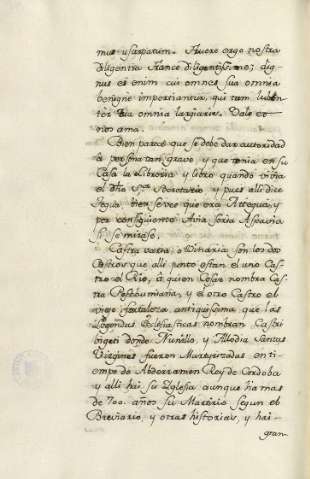 mus usurpatum. Avere ergo nostra
diligentia Franco diligentissimo; dig-
nus es enim cui omnes sua omnia
benigne impertiantur, qui tam luben-
ter tua omnia largiaris. Vale et
nos ama.
Bien parece que se debe dar autoridad
à persona tan grave y que tenia en su
Casa la Libreria y libro quando vivia
el dho Secretario y pues alli dice
Segua, bien se ve que era Ategua, y
por consiguiente Aña seria Aspavia
si se mirase.
Castra vetra, o Vinaria son los dos
Castros que alli junto estan el uno Cas-
tro el Rio, à quien Cesar nombra Cas-
tra Posthumiana, y el otro Castro el
viejo fortaleza antiquisima que las
Leyendas Eclesiasticas nombran Castri
bigeti donde Nunilo, y Allodia Santas
Virgines fueron Martyrizadas en ti-
empo de Abderramen Rey de Cordoba
y alli hai su Yglesia aunque ha mas
de 700. años su Martirio segun el
Breviario, y otras historias, y hai
gran-